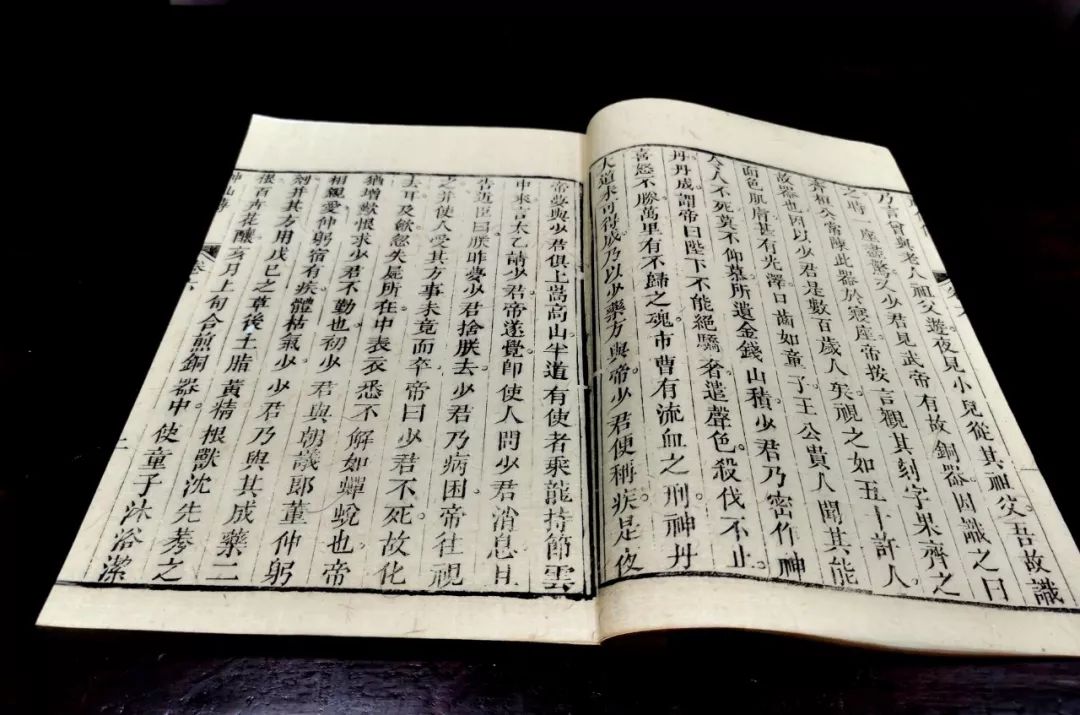 乃言曾與老人祖父遊夜見小兒從其祖父吾故識
之時一座盡驚又少君見武帝有故銅器因識之曰
齊桓公常陳此器於寢座帝按言觀其刻字果齊之
故器也因以少君是數百歲人矣視之如五十許人
面色肌膚甚有光澤口齒如童子王公貴人聞其能
令人不死莫不仰慕所遺金錢山積少君乃密作神
丹丹成謂帝曰陛下不能絕驕奢遣聲色殺伐不止
喜怒不勝萬里有不歸之魂市曹有流血之刑神丹
大道未可得成乃以少藥方與帝少君便稱疾是夜
帝夢與少君俱上嵩高山半道有使者乘龍持節雲
中來言太乙請少君帝遂覺即使人問少君消息且
告近臣曰朕昨夢少君捨朕去少君乃病困帝往視
之并使人受其方事未竟而卒帝曰少君不死故化
去耳及斂忽失屍所在中表衣悉不解如蟬蛻也帝
猶增歎恨求少君不勤也初少君與朝議郎董仲躬
相親愛仲躬宿有疾體枯氣少少君乃與其成藥二
劑并其方用戊己之草後土脂黃精根獸沈先莠之
根百卉花釀亥月上旬合煎銅器中使童子沐浴潔
神仙傳 卷六 二